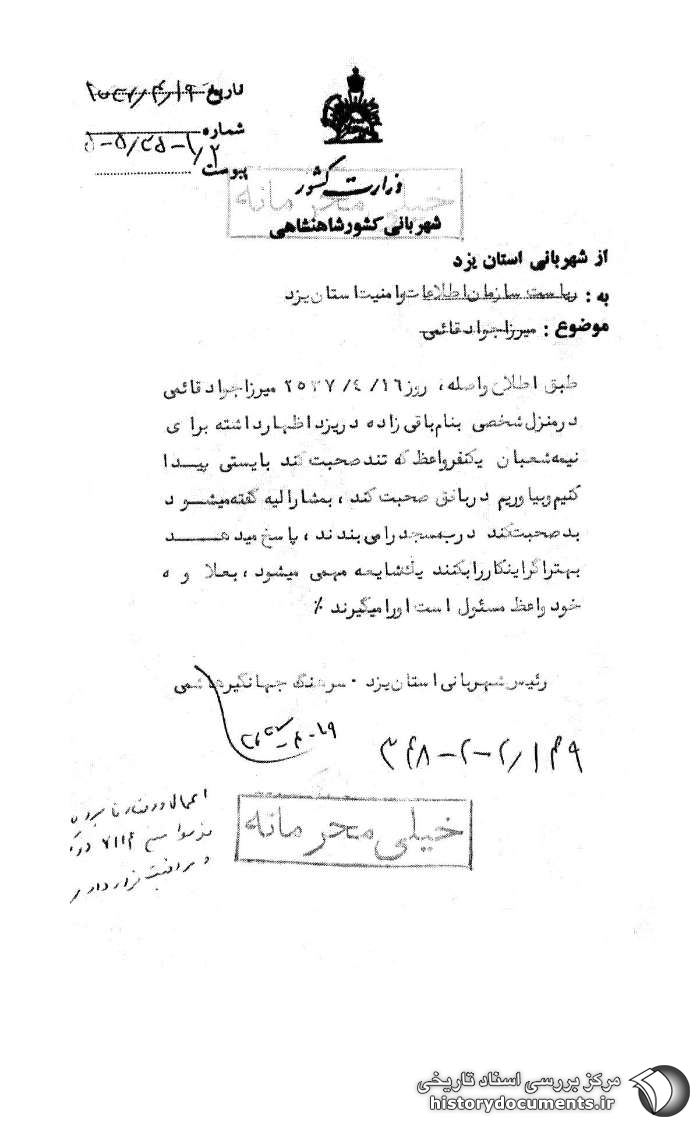 تاریخ ۲۵۳۷/۴/۱۹
شماره
پیوست
وزارت کشور
خیلی محرمانه
شهربانی کشور شاهنشاهی
از شهربانی استان یزد
به : ریاست سازمان اطلاعات و امنیت استان یزد
موضوع : میرزاجواد قائمی
طبق اطلاع واصله ، روز ۱۶/ ۴/ ۲۵۳۷ میرزاجواد قائمی
درمنزل شخصی بنام باقی زاده دریزد اظهارداشته برای
نیمه شعبان یکنفرواعظ که تند صحبت کند بایستی پیدا
کنیم وبیاوریم دربافق صحبت کند ، بمشارالیه گفته میشود
بد صحبت کند درب مسجد رامی بندند ، پاسخ میدهد
بهتراگراینکاررابکنند یک شایعه مهمی میشود ، بعلاوه
خود واعظ مسئول است اورامیگیرند ٪
رئیس شهربانی استان یزد . سرهنگ جهانگیرهاشمی
۳۴۸-۲-۲/۱۴۹
خیلی محرمانه
مرکز بررسی اسناد تاریخی
historydocuments.ir